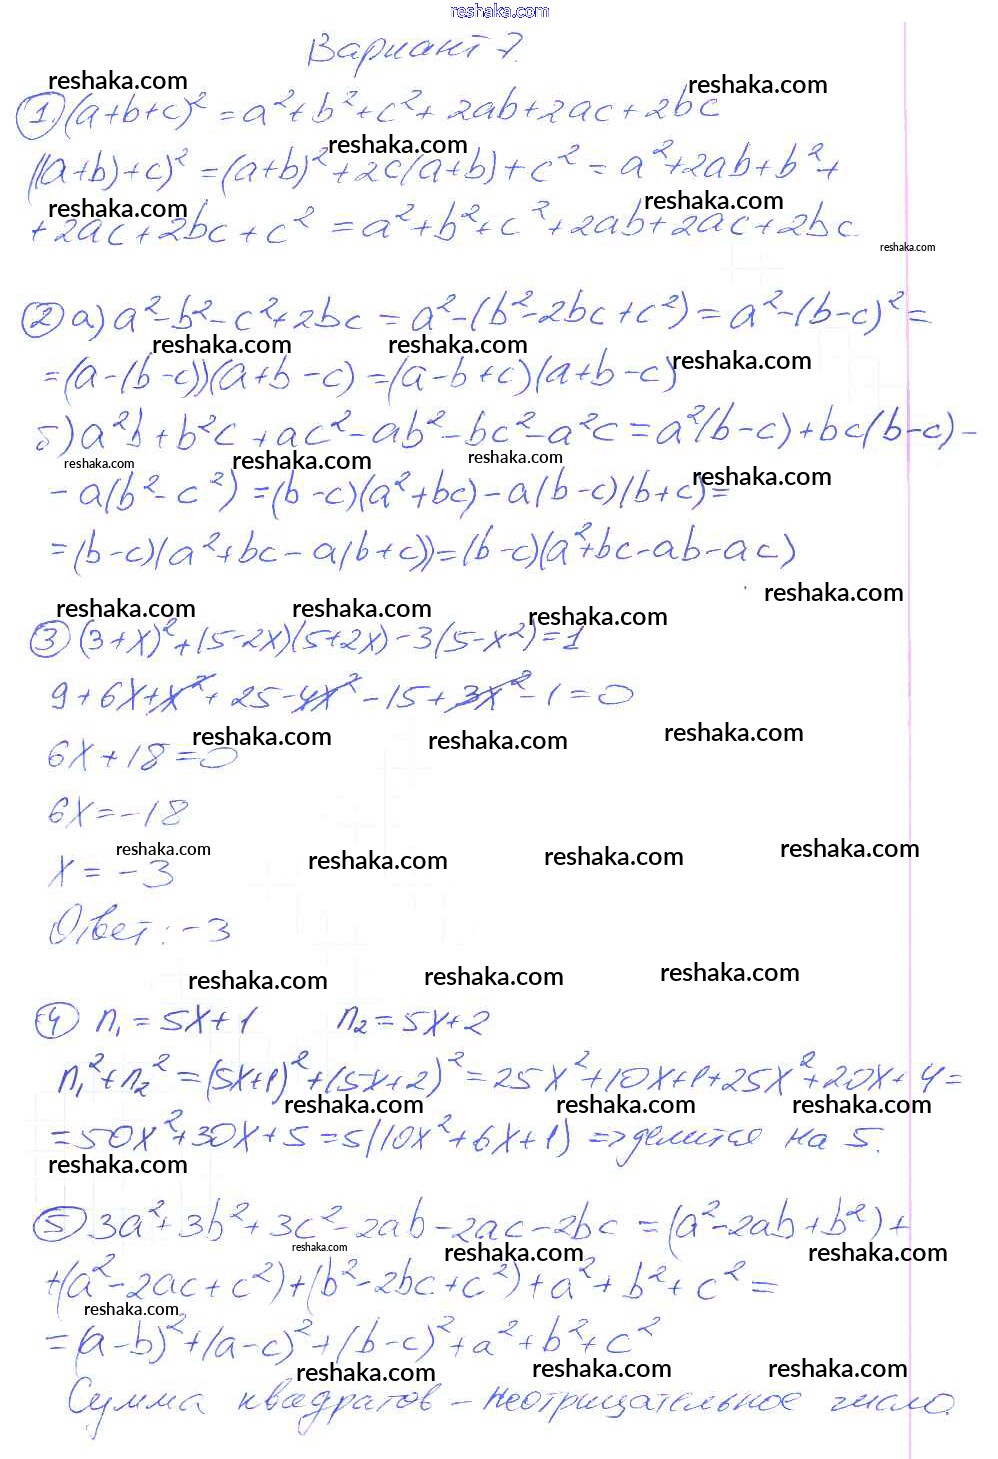 reshaka.com
Вариант 7.
reshaka.com reshaka.com
1. (a+b+c)² = a²+b²+c²+2ab+2ac+2bc
reshaka.com
((a+b)+c)² = (a+b)²+2c(a+b)+c² = a²+2ab+b²+
reshaka.com reshaka.com
+2ac+2bc+c² = a²+b²+c²+2ab+2ac+2bc
reshaka.com
2 а) a²-b²-c²+2bc = a²-(b²-2bc+c²) = a²-(b-c)² =
reshaka.com reshaka.com reshaka.com
=(a-(b-c))(a+b-c) = (a-b+c)(a+b-c)
б) a²b+b²c+ac²-ab²-bc²-a²c = a²(b-c)+bc(b-c)-
reshaka.com reshaka.com reshaka.com reshaka.com
-a(b²-c²) = (b-c)(a²+bc)-a(b-c)(b+c) =
=(b-c)(a²+bc-a(b+c)) = (b-c)(a²+bc-ab-ac)
reshaka.com
reshaka.com reshaka.com reshaka.com
3 (3+x)²+(5-2x)(5+2x)-3(5-x²)=1
9+6x+x²+25-4x²-15+3x²-1=0
reshaka.com reshaka.com reshaka.com
6x+18=0
6x=-18
reshaka.com reshaka.com reshaka.com reshaka.com
x = -3
Ответ: -3
reshaka.com reshaka.com reshaka.com
4 n₁ = 5x+1 n₂ = 5x+2
n₁²+n₂² = (5x+1)²+(5x+2)² = 25x²+10x+1+25x²+20x+4 =
reshaka.com reshaka.com reshaka.com
=50x²+30x+5 = 5(10x²+6x+1) => делится на 5.
reshaka.com
5 3a²+3b²+3c²-2ab-2ac-2bc = (a²-2ab+b²)+
reshaka.com reshaka.com reshaka.com
+(a²-2ac+c²)+(b²-2bc+c²)+a²+b²+c² =
reshaka.com
=(a-b)²+(a-c)²+(b-c)²+a²+b²+c²
reshaka.com reshaka.com reshaka.com
Сумма квадратов – неотрицательное число.